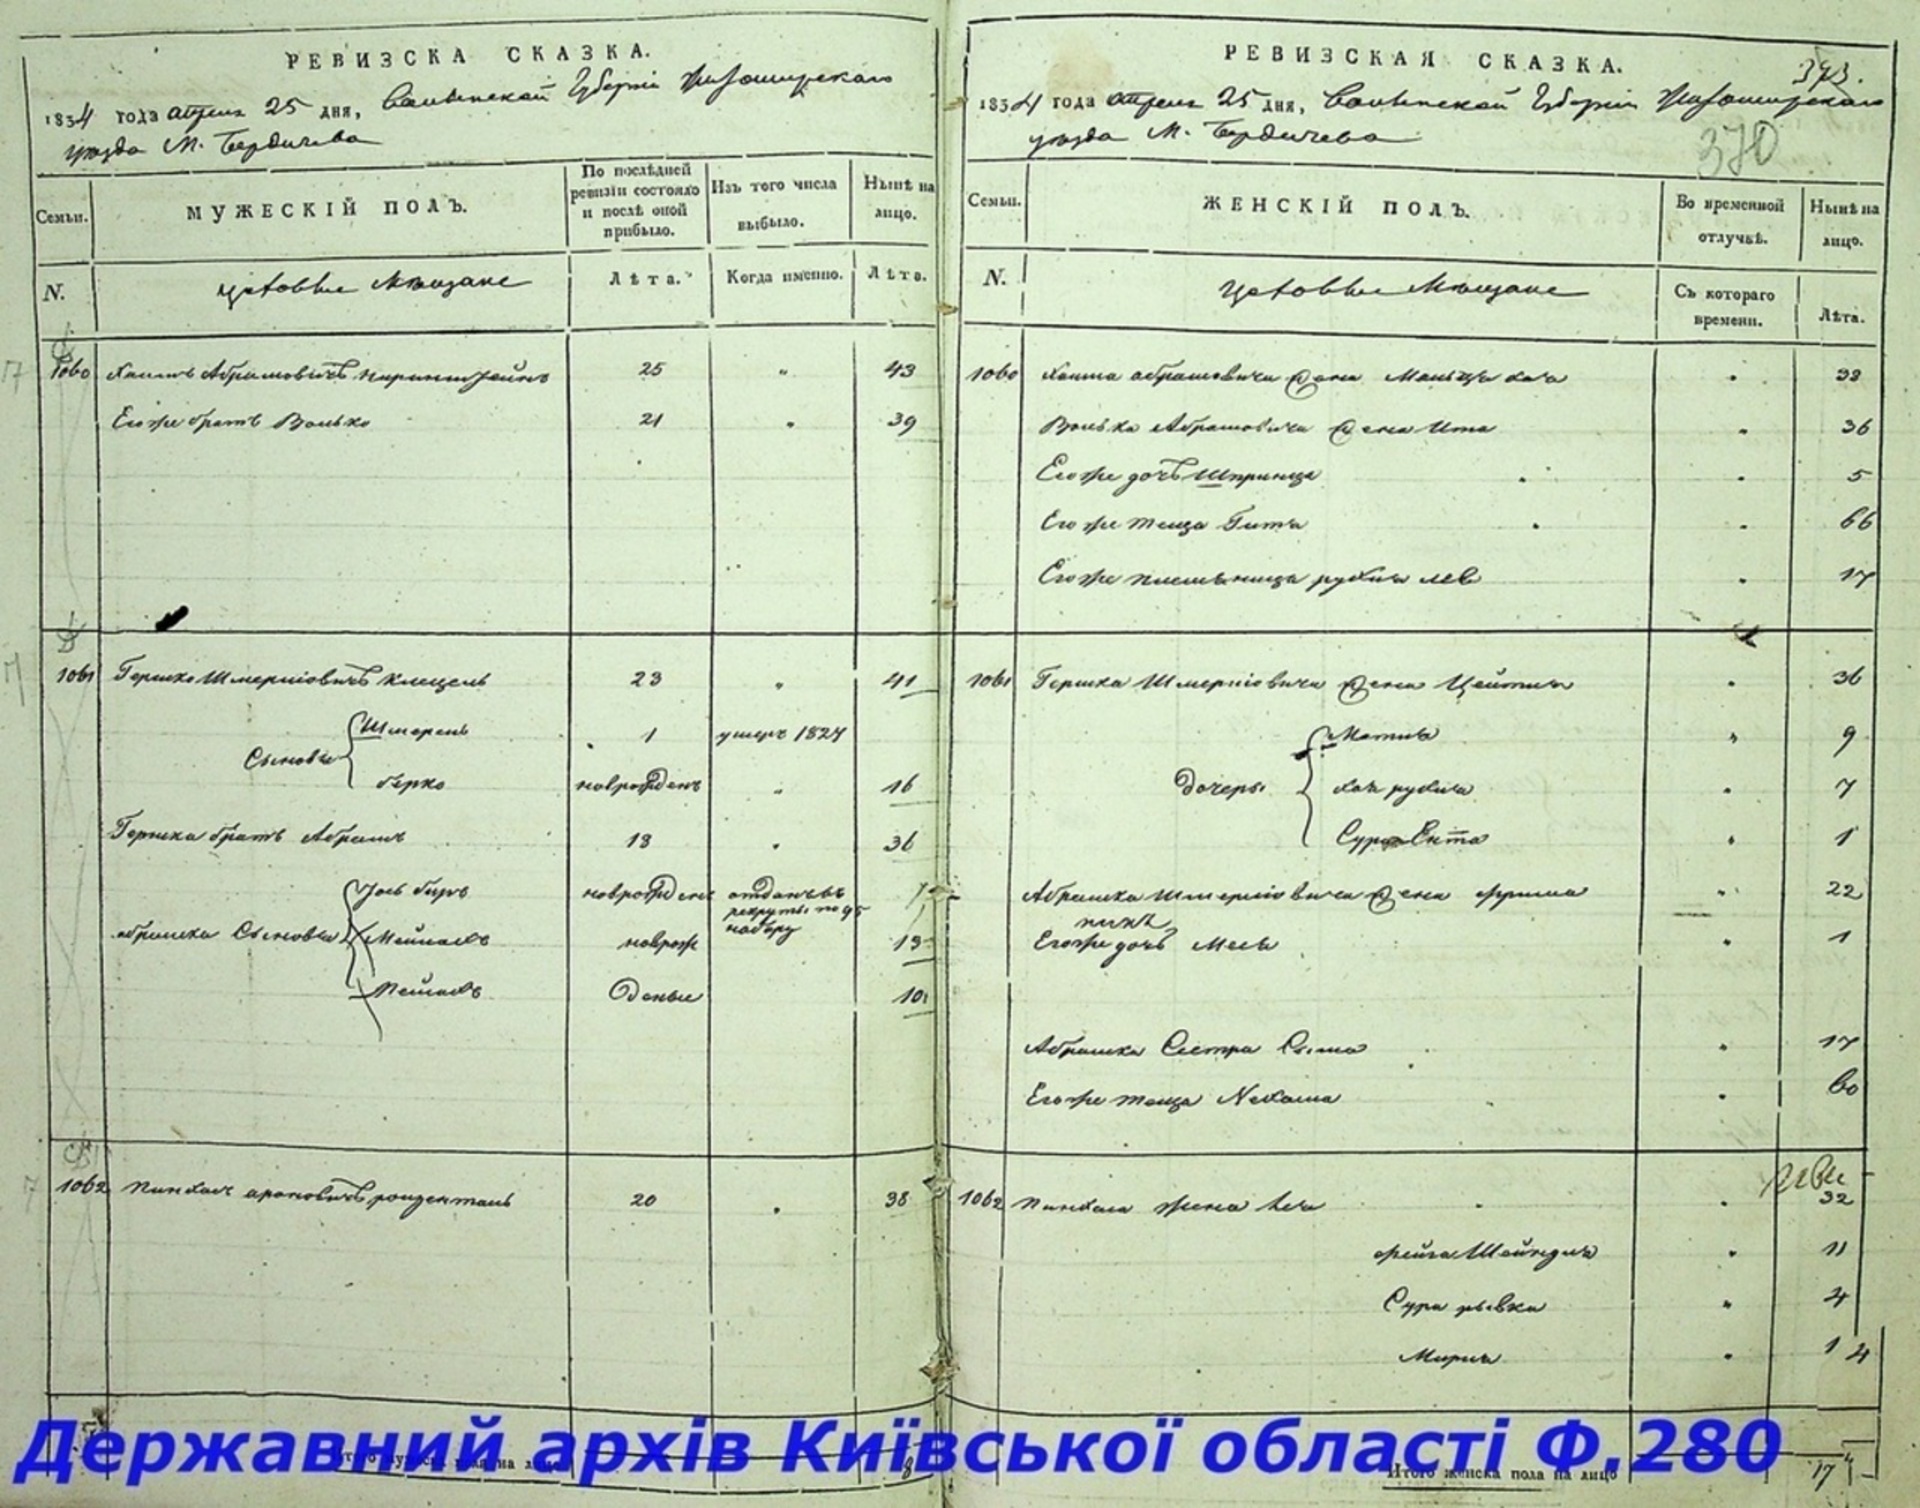 РЕВИЗСКА СКАЗКА.
1834 года апреля 25 дня, Волынской Губернiи Житомирскаго
уезда М. Бердичева
Семьи.
МУЖЕСКIЙ ПОЛЪ.
По послѣдней ревизiи состояло и послѣ оной прибыло.
Изъ того числа выбыло.
Нынѣ на лицо.
N.
Цеховые Мещане
Лѣта.
Когда именно.
Лѣта.
1060 Хаимъ Абрамовичъ 25 " 43
Его же братъ Волько 21 " 39
1061 Гершко Шмерлiовичъ Клецель 23 " 41
Сыновья
Шмерель 1 умеръ 1827
Берко новорожденъ " 16
Гершка братъ Абрамъ 18 " 36
Абрамка Сыновья
Іось Беръ новорожден отданъ въ рекруты по 95 набору
Мейлахъ новорож 13
Пейсахъ деные 10
1062 Пинхасъ Ароновичъ Розенталь 20 " 38
Итого мужеска пола на лицо 8
РЕВИЗСКАЯ СКАЗКА.
373.
1834 года апреля 25 дня, Волынской Губернiи Житомирскаго
уезда М. Бердичева
370
Семьи.
ЖЕНСКIЙ ПОЛЪ.
Во временной отлучкѣ.
Нынѣ на лицо.
N.
Цеховые Мещане
Съ котораго времени.
Лѣта.
1060 Хаима Абрамовича жена 38
Волька Абрамовича жена Ита " 36
Его же дочъ Шпринца " 5
Его же теща Гитля " 66
Его же племяница Рухля Лея " 17
1061 Гершка Шмерлiовича жена Цейтля " 36
Дочеры
Матля " 9
Хая Рухля " 7
Сура Ента " 1
Абрамка Шмерлiовича жена Фрима " 22
Его же дочъ " 1
Абрамка Сестра Сима " 17
Его же теща Нехама " 60
1062 Пинхаса жена Лея " 32
Фейга Шейндля " 11
Сура Рывка " 4
Мирля " 1
4
Итого женска пола на лицо 17
Державний архів Київської області Ф.280